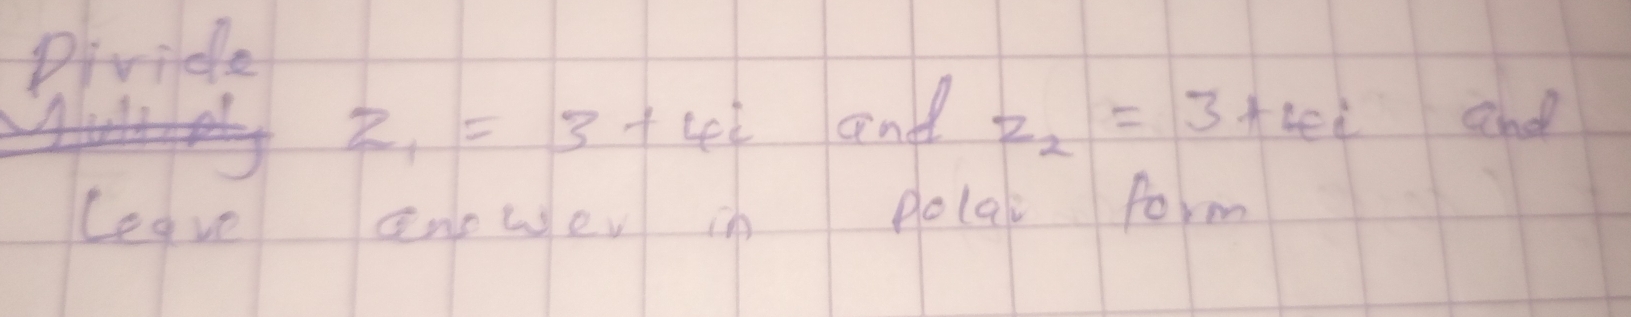 Divide
Multiply Z₁ = 3 + 4i and z₂ = 3 + 4i and
leave answer in polar form